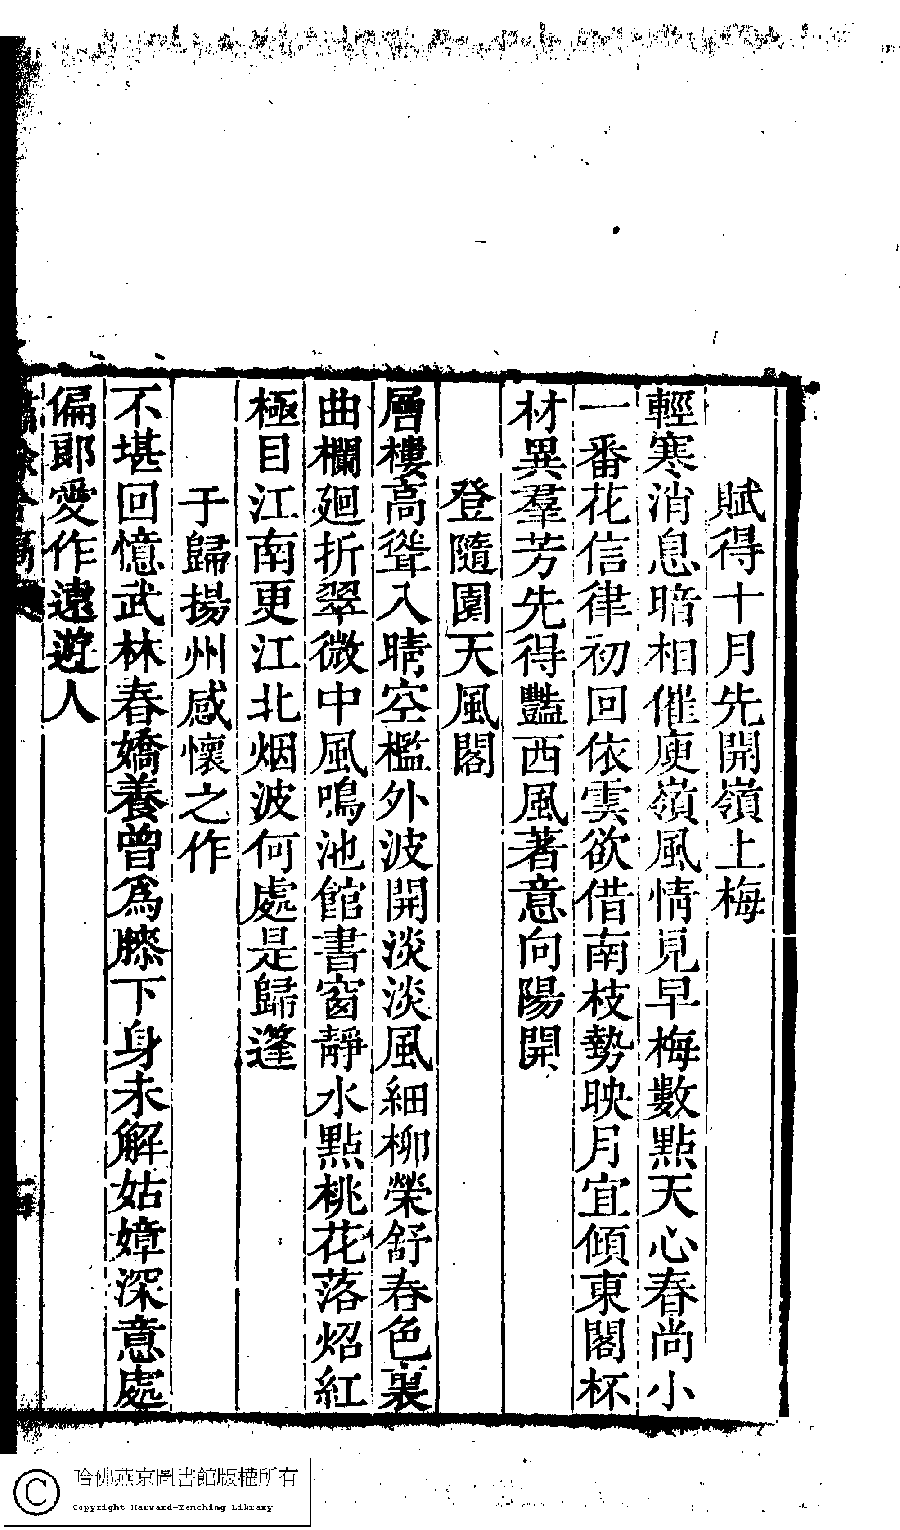 賦得十月先開嶺上梅
輕寒消息暗相催庾嶺風情見早梅數點天心春尚小
一番花信律初回依雲欲借南枝勢映月宜傾東閣杯
材異羣芳先得豔西風著意向陽開
登隨園天風閣
層樓高聳入晴空檻外波開淡淡風細柳榮舒春色裏
曲欄廻折翠微中風鳴池館書窗靜水點桃花落炤紅
極目江南更江北烟波何處是歸篷
于歸揚州感懷之作
不堪回憶武林春嬌養曾爲膝下身未解姑嫜深意處
偏郎愛作遠遊人
哈佛燕京圖書館版權所有
Copyright Harvard-Yenching Library